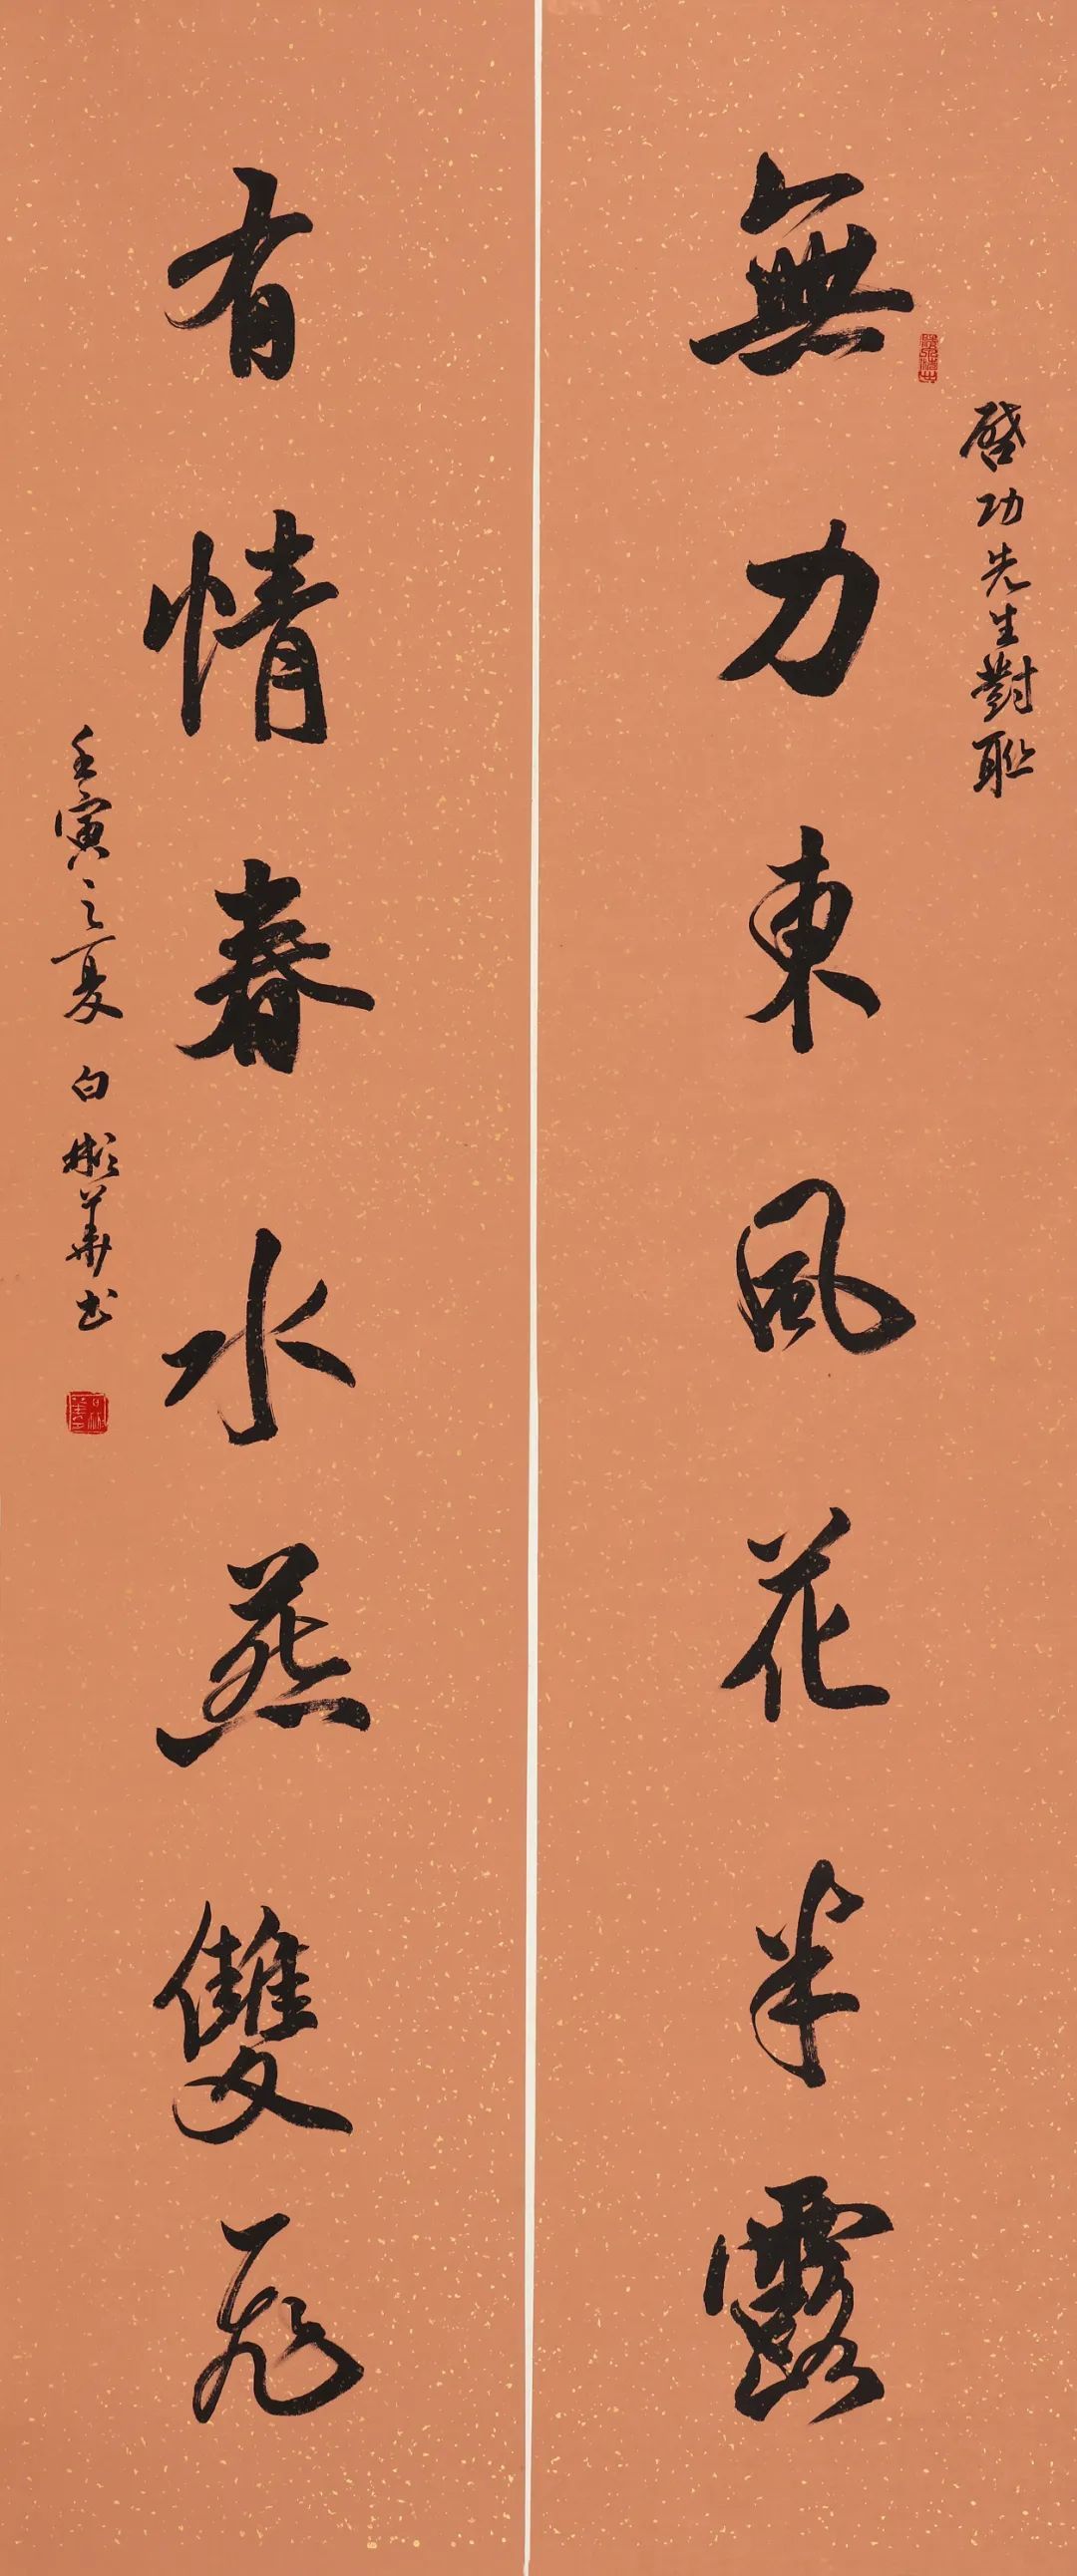 啓功先生對聯
無力東風花半露
有情春水燕雙飛
壬寅之夏白彬華書